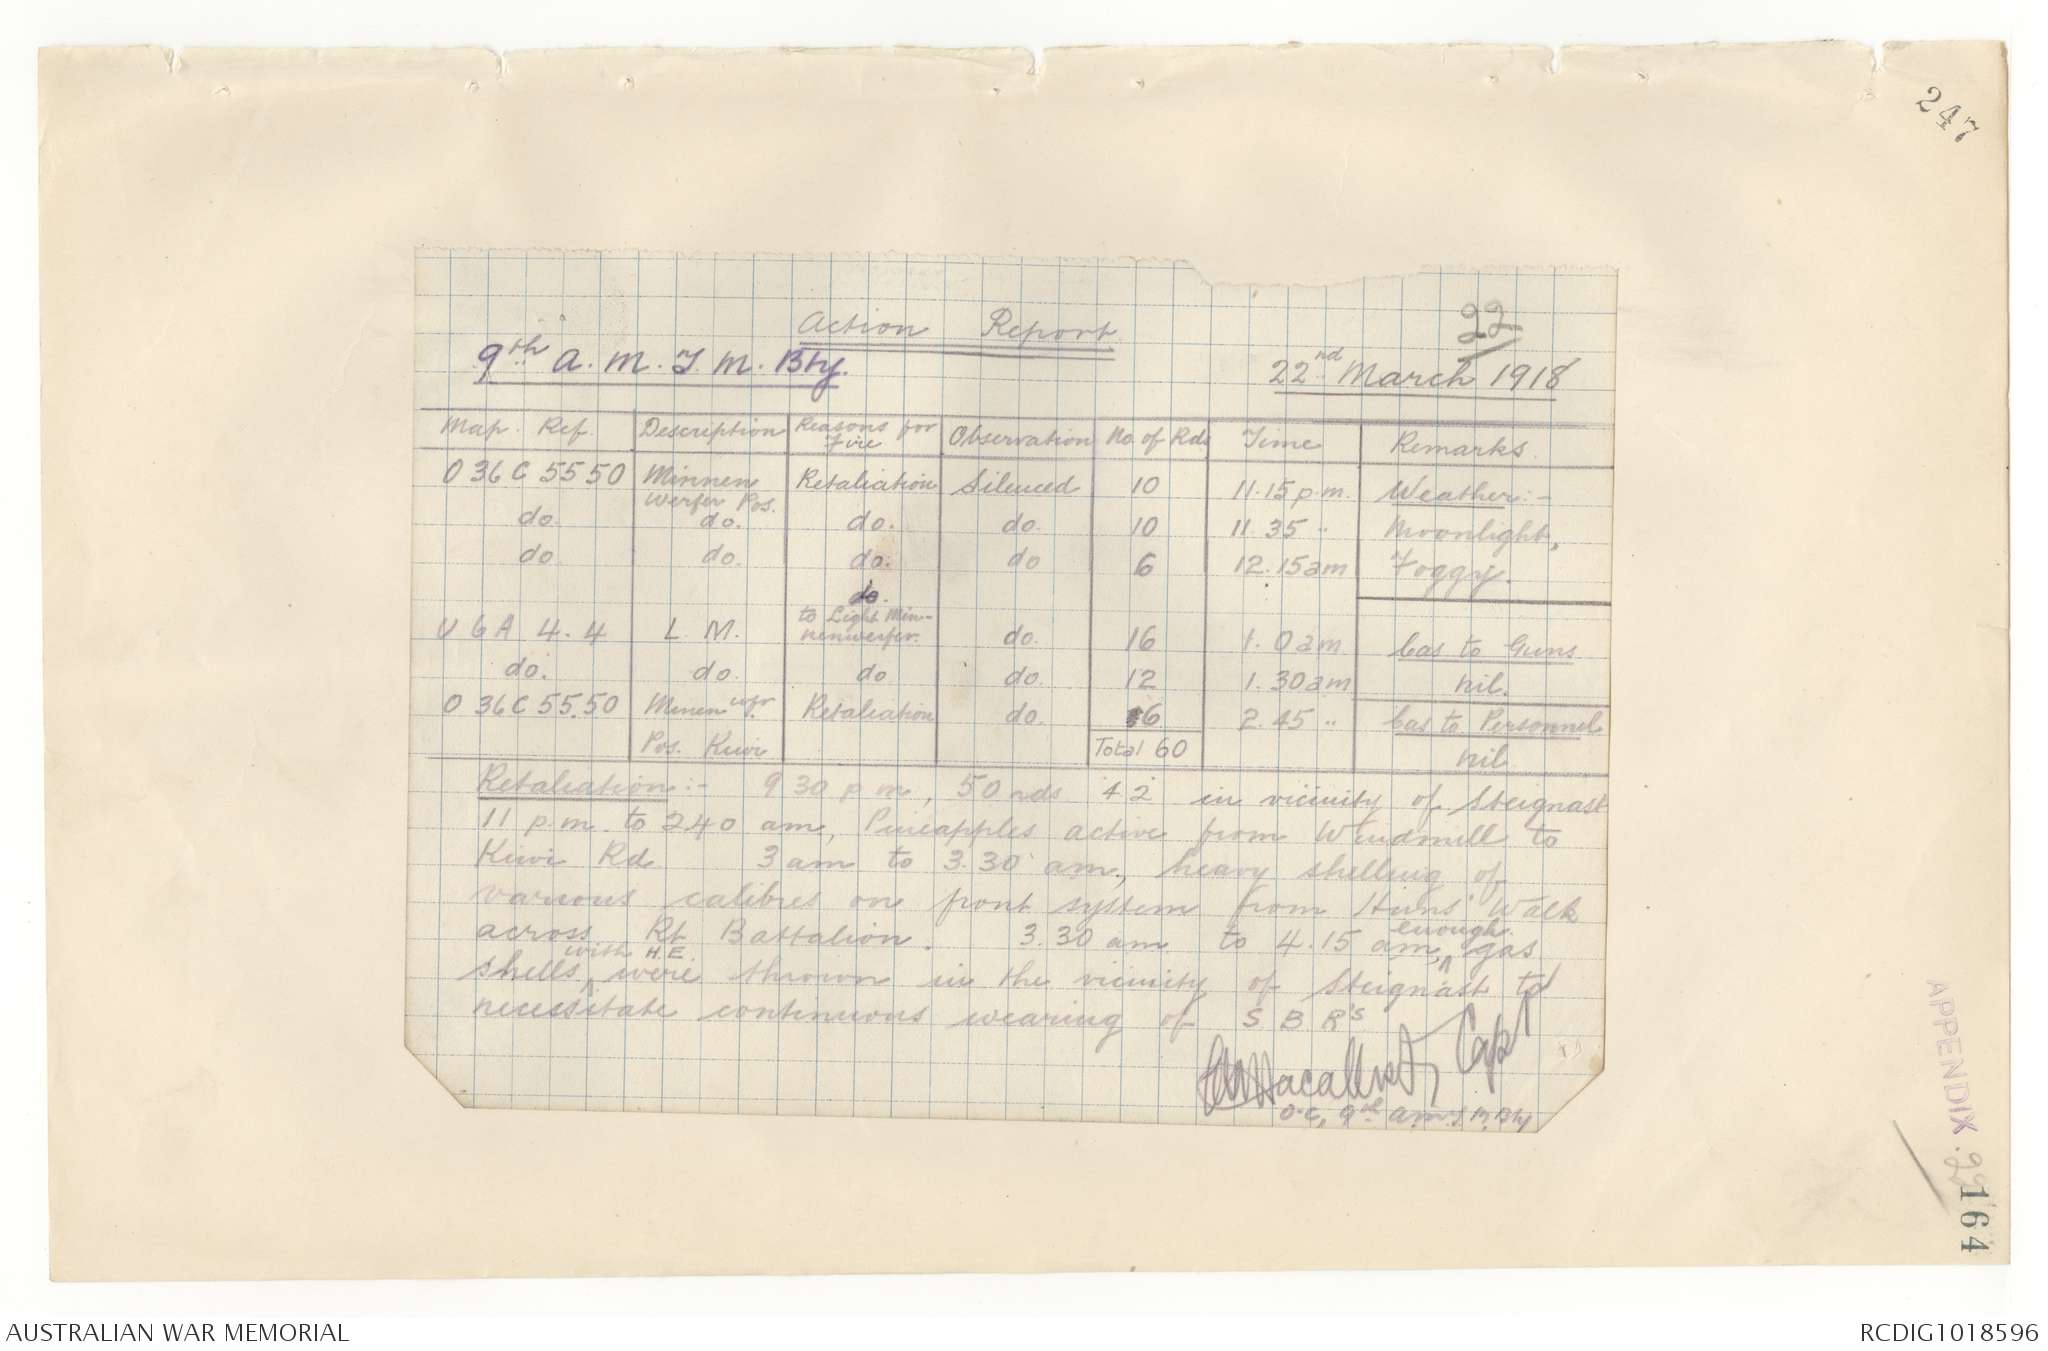 247
Action Report
22
9th A. M. T. M. Bty.
22nd March 1918
Map. Ref. | Description | Reasons for Fire | Observation | No. of Rds | Time | Remarks.
O 36 C 55 50 | Minnen werfer Pos. | Retaliation | Silenced | 10 | 11.15 p.m. | Weather:-
do. | do. | do. | do. | 10 | 11.35 " | Moonlight,
do | do. | do. | do | 6 | 12.15 am | Foggy.
do.
U 6 A 4.4 | L. M. | to Light Minnenwerfer. | do. | 16 | 1.0 am | Cas to Guns
do. | do. | do | do. | 12 | 1.30 am | nil.
O 36 C 55.50 | Minen wfr | Retaliation | do. | 6 | 2.45 " | Cas to Personnel
Pos. Kiwi | Total 60 | nil.
Retaliation:- 9 30 p m, 50 rds 4.2 in vicinity of Steignast
11 p.m. to 240 am, Pineapples active from Windmill to
Kiwi Rd 3 am to 3.30 am, heavy shelling of
various calibres on front system from Huns' Walk
across Rt Battalion. 3.30 am to 4.15 am, enough gas
shells with H.E. were thrown in the vicinity of Steignast to
necessitate continuous wearing of S B R's
Capt
O.C, 9th A.M.T.M. Bty
APPENDIX. 22
164
AUSTRALIAN WAR MEMORIAL
RCDIG1018596